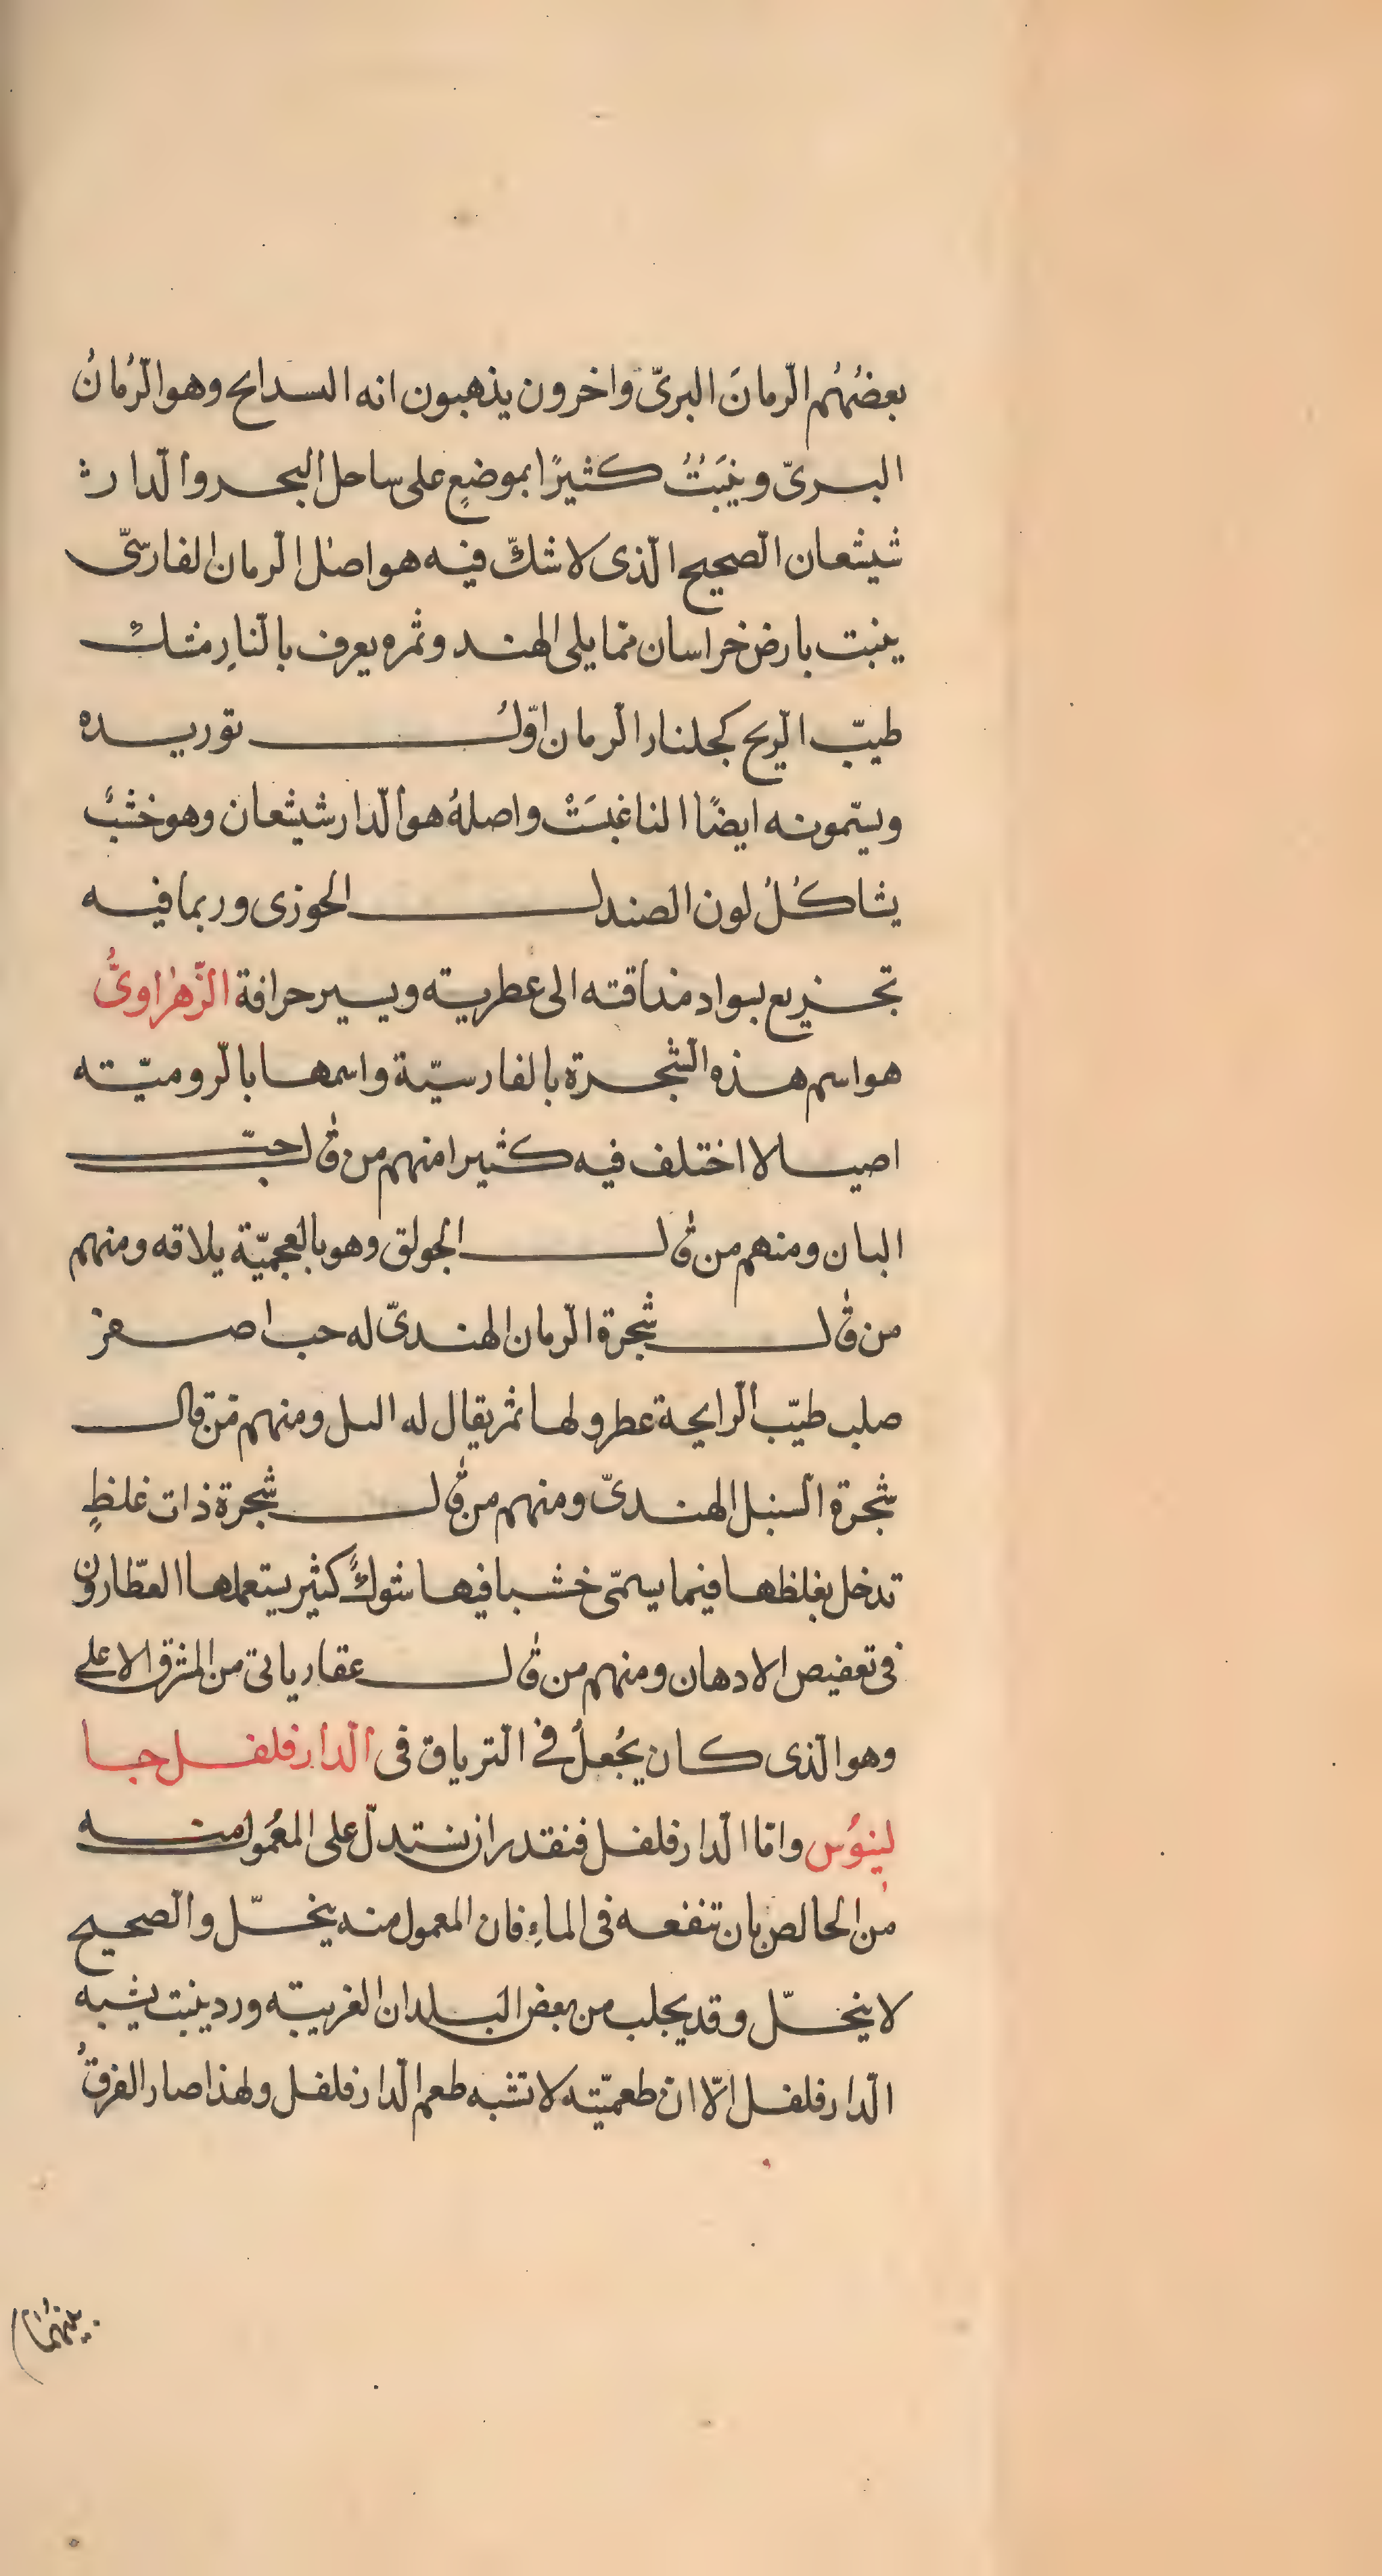 بعضُهُم الّرمانَ البرىّ واخرون يذهبون انه السدابح وهو الّرُمانُ
البرىّ وينبَتُ كثيرًا بموضعٍ على ساحل البحر والّدارش
شيشعان الّصحيح الّذى لا شكّ فيه هو اصل الّرمان الفارسّى
ينبت بارض خراسان مما يلى الهند وثمره يعرف بالّنارِ مشك
طيّب الّريح كجلنار الّرمان اوّلُ توريده
ويسّمونه ايضًا الناغبَستْ واصلهُ هو الّدارشيشعان وهو خشبٌ
يشاكلُ لون الصندل الحوزى وربما فيه
تجزيع بسواد مذاقته الى عطريته ويسير حرافة الزّهراوىُّ
هو اسم هذه الشّجرة بالفارسيّة واسمها بالّروميّته
اصيالا اختلف فيه كثيرا منهم من قال حبّ
البان ومنهم من قال الجولق وهو بالعجميّة يلاقه ومنهم
من قال شجرة الّرمان الهندىّ له حب اصفر
صلب طيّب الّرايحة عطر ولها ثمر يقال له البل ومنهم مَن قال
شجرة الّسنبل الهندىّ ومنهم من قال شجرة ذات غلظٍ
تدخل بغلظها فيما يسمّى خشبا فيها شوكٌ كثير يستعملها العطّارون
فى تعفيص الادهان ومنهم من قال عقار ياتى من المشرق الاعلى
وهو الّذى كان يُجعلُ فى الّترياق فى الّدارفلفل جا
لينوُس وامّا الّدارفلفل فنقدر ان نستدلّ على المعُمول منه
من الخالص بان تنفعه فى الماءِ فان المعمول منه ينحلّ والّصحيح
لا ينحلّ وقد يجلب من بعض البلدان الغربيّه ورد ينبت يشبه
الّدارفلفل الّا ان طعميّته لا تشبه طعم الّدارفلفل ولهذا صار الفرقُ
بينهُمَا